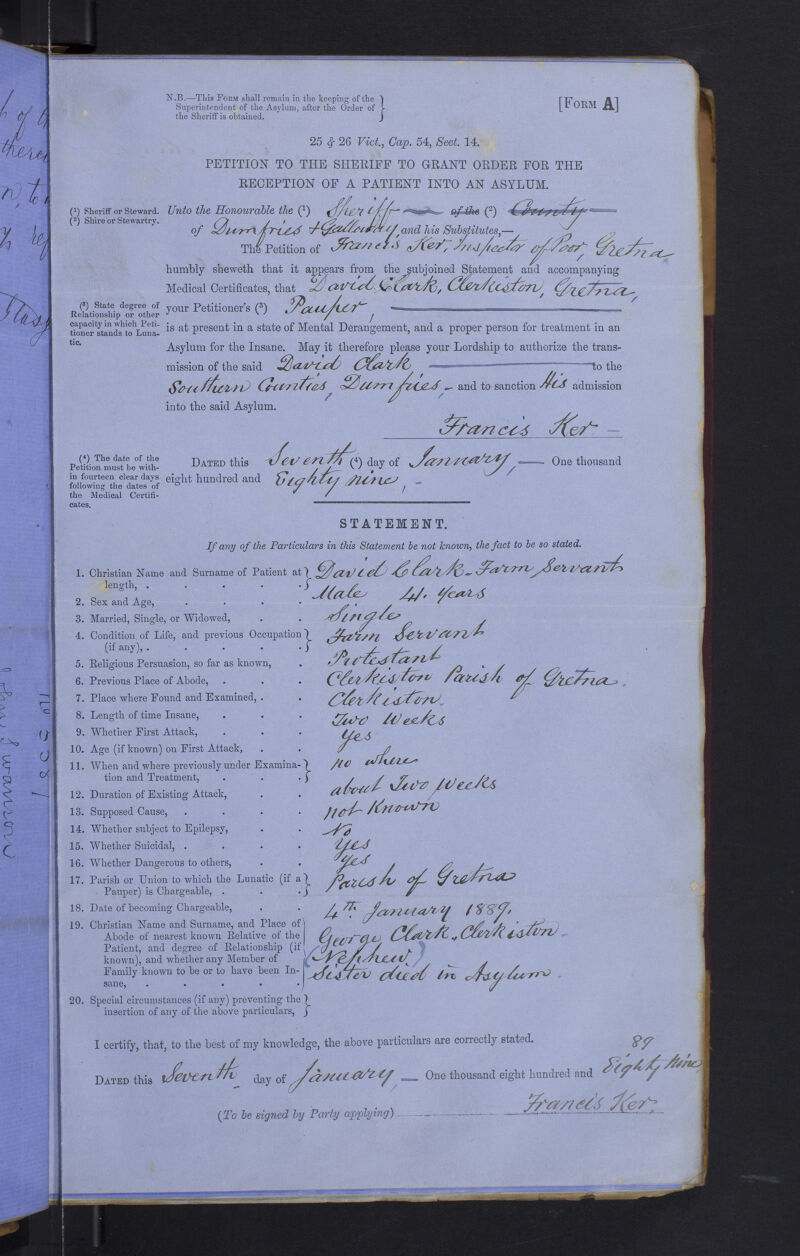 N.B.—This Form shall remain in the keeping of the
Superintendent of the Asylum, after the Order of
the Sheriff is obtained.
[Form A]
25 & 26 Vict., Cap. 54, Sect. 14.
PETITION TO THE SHERIFF TO GRANT ORDER FOR THE
RECEPTION OF A PATIENT INTO AN ASYLUM.
(1) Sheriff or Steward.
(2) Shire or Stewartry.
Unto the Honourable the (1) Sheriff of the (2) County
of Dumfries & Galloway and his Substitutes,—
The Petition of Francis Ker, Inspector of Poor, Gretna
humbly sheweth that it appears from the subjoined Statement and accompanying
Medical Certificates, that David Clark, Clerkiston, Gretna,
(3) State degree of
Relationship or other
capacity in which Peti-
tioner stands to Luna-
tic.
your Petitioner's (3) Pauper,
is at present in a state of Mental Derangement, and a proper person for treatment in an
Asylum for the Insane. May it therefore please your Lordship to authorize the trans-
mission of the said David Clark to the
Southern Counties, Dumfries, - and to sanction His admission
into the said Asylum.
Francis Ker -
(4) The date of the
Petition must be with-
in fourteen clear days
following the dates of
the Medical Certifi-
cates.
Dated this Seventh (4) day of January, One thousand
eight hundred and Eighty nine, -
STATEMENT.
If any of the Particulars in this Statement be not known, the fact to be so stated.
1. Christian Name and Surname of Patient at
length, . David Clark - Farm Servant
2. Sex and Age, Male 41. years
3. Married, Single, or Widowed, Single
4. Condition of Life, and previous Occupation
(if any), . Farm Servant
5. Religious Persuasion, so far as known, Protestant
6. Previous Place of Abode, Clerkiston Parish of Gretna.
7. Place where Found and Examined, Clerkiston.
8. Length of time Insane, Two Weeks
9. Whether First Attack, Yes
10. Age (if known) on First Attack,
11. When and where previously under Examina-
tion and Treatment, no where
12. Duration of Existing Attack, about Two Weeks
13. Supposed Cause, not Known
14. Whether subject to Epilepsy, No
15. Whether Suicidal, Yes
16. Whether Dangerous to others, Yes
17. Parish or Union to which the Lunatic (if a
Pauper) is Chargeable, Parish of Gretna
18. Date of becoming Chargeable, 4th. January 1889.
19. Christian Name and Surname, and Place of
Abode of nearest known Relative of the
Patient, and degree of Relationship (if
known), and whether any Member of
Family known to be or to have been In-
sane,
George Clark, Clerkiston
(Nephew)
Sister died in Asylum.
20. Special circumstances (if any) preventing the
insertion of any of the above particulars,
I certify, that, to the best of my knowledge, the above particulars are correctly stated.
89
Dated this Seventh day of January, One thousand eight hundred and Eighty Nine
(To be signed by Party applying) Francis Ker.